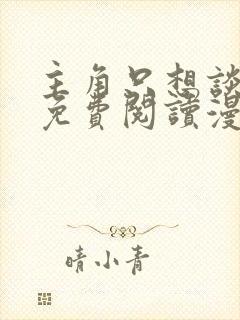 主角只想談
免費閱讀漫
晴小青